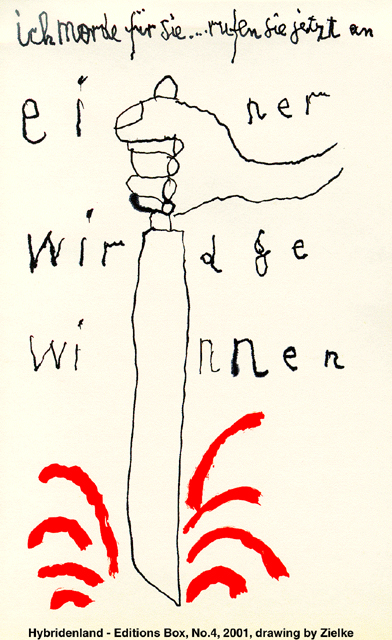 ich morde für sie... rufen sie jetzt an
ei ner
wir d ge
wi nnen
Hybridenland - Editions Box, No.4, 2001, drawing by Zielke